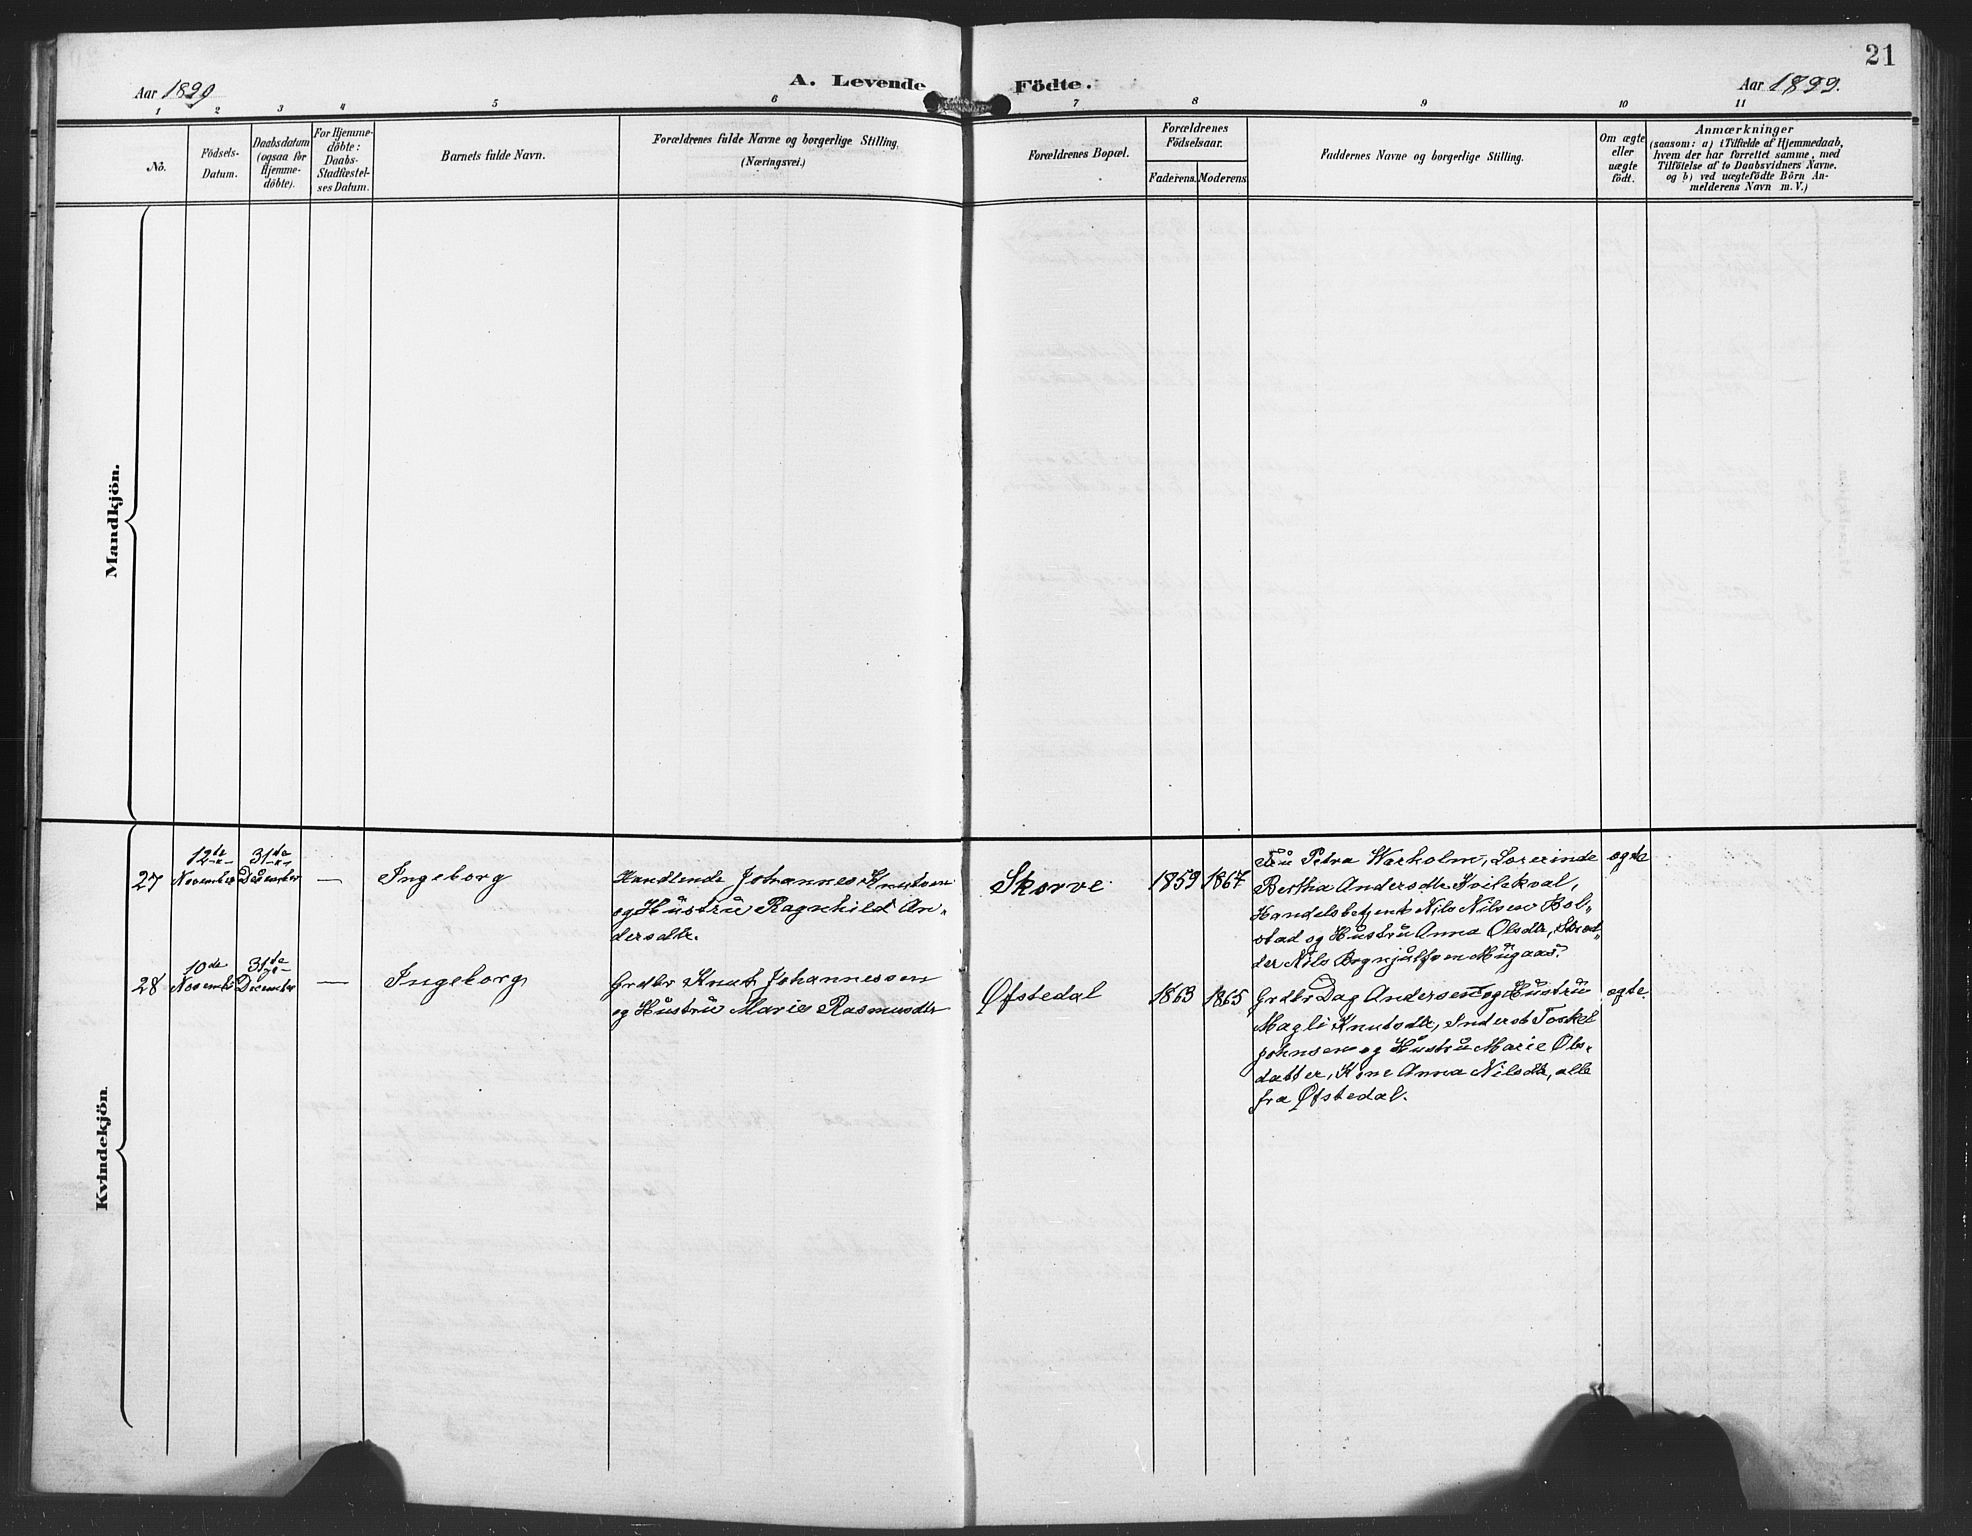 21
Aar 1899
A. Levende Födte.
Aar 1899.
1 2 3 4 5 6 7 8 9 10 11
No.
Födsels-
Datum.
Daabsdatum
(ogsaa for
Hjemme-
döbte).
For Hjemme-
döbte:
Daabs-
Stadfæstel-
ses Datum.
Barnets fulde Navn.
Forældrenes fulde Navne og borgerlige Stilling.
(Næringsvei.)
Forældrenes Bopæl.
Forældrenes
Födselsaar.
Faderens. Moderens
Faddernes Navne og borgerlige Stilling.
Om ægte
eller
uægte
födt.
Anmærkninger
(saasom: a) i Tilfælde af Hjemmedaab,
hvem der har forrettet samme, med
Tilföielse af to Daabsvidners Navne.
og b) ved uægtefödte Börn An-
melderens Navn m. V.)
Mandkjön.
Kvindekjön.
27
12te
November
31te
December
—
Ingeborg
Handlende Johannes Knutsen
og Hustru Ragnhild An-
dersdtr.
Skorve
1859 1867
Fru Petra Warholm, Lærerinde
Bertha Andersdtr Kvilekval,
Handelsbetjent Nils Nilsen Bol-
stad og Hustru Anna Olsdtr, Skræd-
der Nils Brynjulfsen Mugaas.
ægte
28
10de
November
31te
December
—
Ingeborg
Grdbr Knut Johannessen
og Hustru Marie Rasmusdtr
Øfstedal
1863 1865
Grdbr Dag Andersen og Hustru
Magli Knutsdtr, Inderst Torkel
Johnsen og Hustru Marie Ols-
datter, Kone Anna Nilsdtr, alle
fra Øfstedal.
ægte